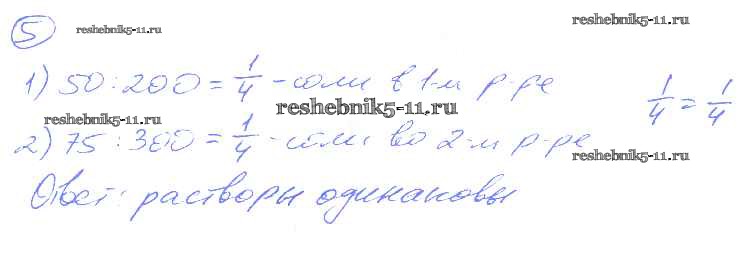 5 reshebnik5-11.ru reshebnik5-11.ru
1) 50 : 200 = 1/4 - соли в 1-м р-ре
reshebnik5-11.ru reshebnik5-11.ru 1/4 = 1/4
2) 75 : 300 = 1/4 - соли во 2-м р-ре
reshebnik5-11.ru
Ответ: растворы одинаковы